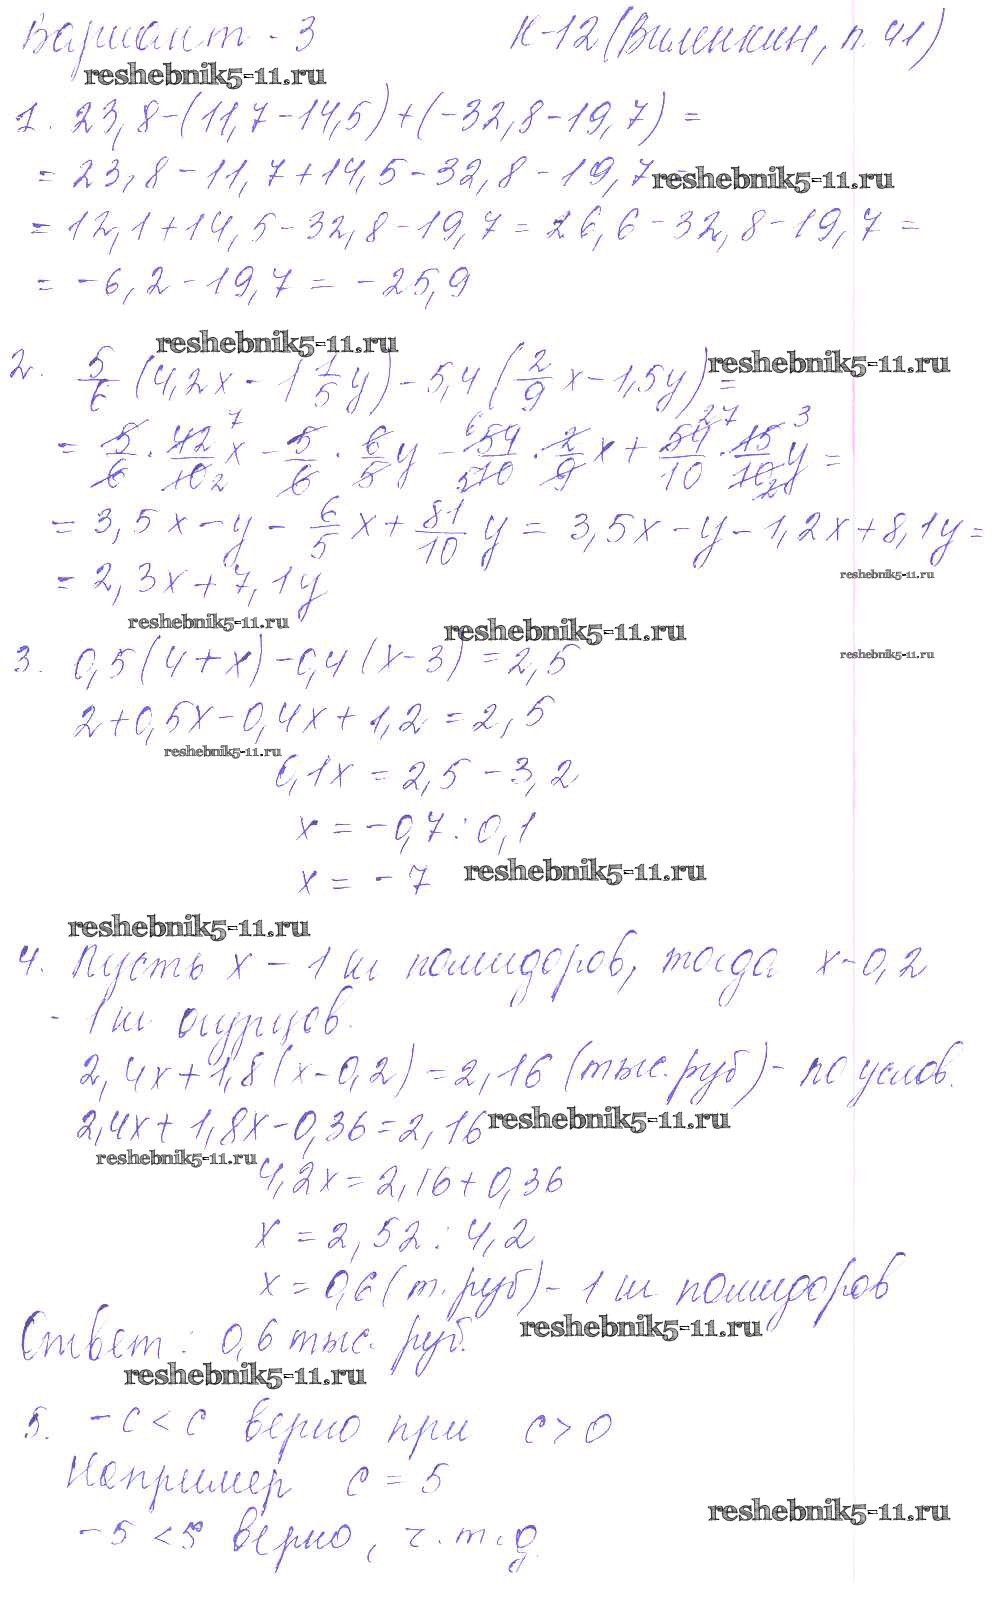 Вариант - 3 К-12 (Виленкин, п. 41)
reshebnik5-11.ru
1. 23,8-(11,7-14,5)+(-32,8-19,7) =
= 23,8-11,7+14,5-32,8-19,7 =
reshebnik5-11.ru
= 12,1+14,5-32,8-19,7 = 26,6-32,8-19,7 =
= -6,2-19,7 = -25,9
reshebnik5-11.ru
2. 5/6 (4,2x - 1 1/5 y) - 5,4 (2/9 x - 1,5y) =
reshebnik5-11.ru
= 5/6 · 42/10 x - 5/6 · 6/5 y - 54/10 · 2/9 x + 54/10 · 15/10 y =
= 3,5x - y - 6/5 x + 81/10 y = 3,5x - y - 1,2x + 8,1y =
reshebnik5-11.ru
= 2,3x + 7,1y
reshebnik5-11.ru
reshebnik5-11.ru
3. 0,5(4+x) - 0,4(x-3) = 2,5
reshebnik5-11.ru
2+0,5x-0,4x+1,2 = 2,5
reshebnik5-11.ru
0,1x = 2,5-3,2
x = -0,7 : 0,1
x = -7
reshebnik5-11.ru
reshebnik5-11.ru
4. Пусть x - 1 кг помидоров, тогда x-0,2
- 1 кг огурцов.
2,4x+1,8(x-0,2) = 2,16 (тыс. руб) - по услов.
2,4x+1,8x-0,36=2,16
reshebnik5-11.ru
reshebnik5-11.ru
4,2x=2,16+0,36
x = 2,52 : 4,2
x = 0,6 (т. руб) - 1 кг помидоров
Ответ: 0,6 тыс. руб.
reshebnik5-11.ru
reshebnik5-11.ru
5. -c < c верно при c > 0
Например c = 5
-5 < 5 верно, ч.т.д.
reshebnik5-11.ru